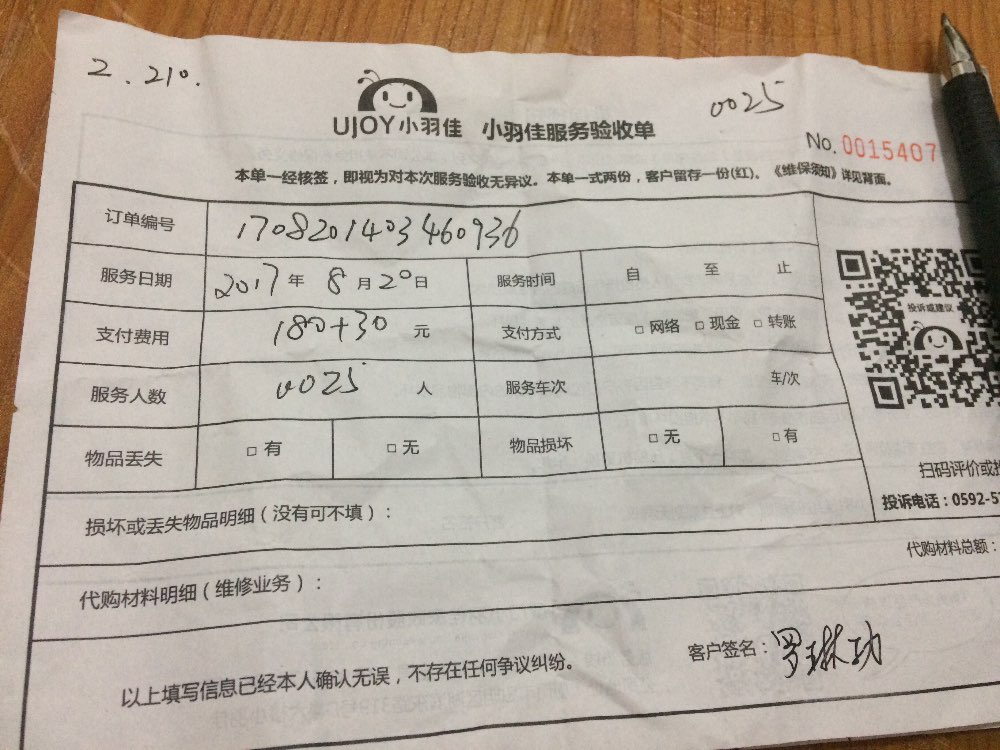 2.210.
0025
UJOY小羽佳 小羽佳服务验收单
No.0015407
本单一经核签，即视为对本次服务验收无异议。本单一式两份，客户留存一份(红)。《维保须知》详见背面。
订单编号 1708201403460936
服务日期 2017年 8月20日 服务时间 自 至 止
支付费用 180+30 元 支付方式 □网络 □现金 □转账
投诉或建议
服务人数 0025 人 服务车次 车/次
物品丢失 □有 □无 物品损坏 □无 □有
扫码评价或
投诉电话：0592-5
损坏或丢失物品明细（没有可不填）：
代购材料总额：
代购材料明细（维修业务）：
客户签名：罗琳功
以上填写信息已经本人确认无误，不存在任何争议纠纷。